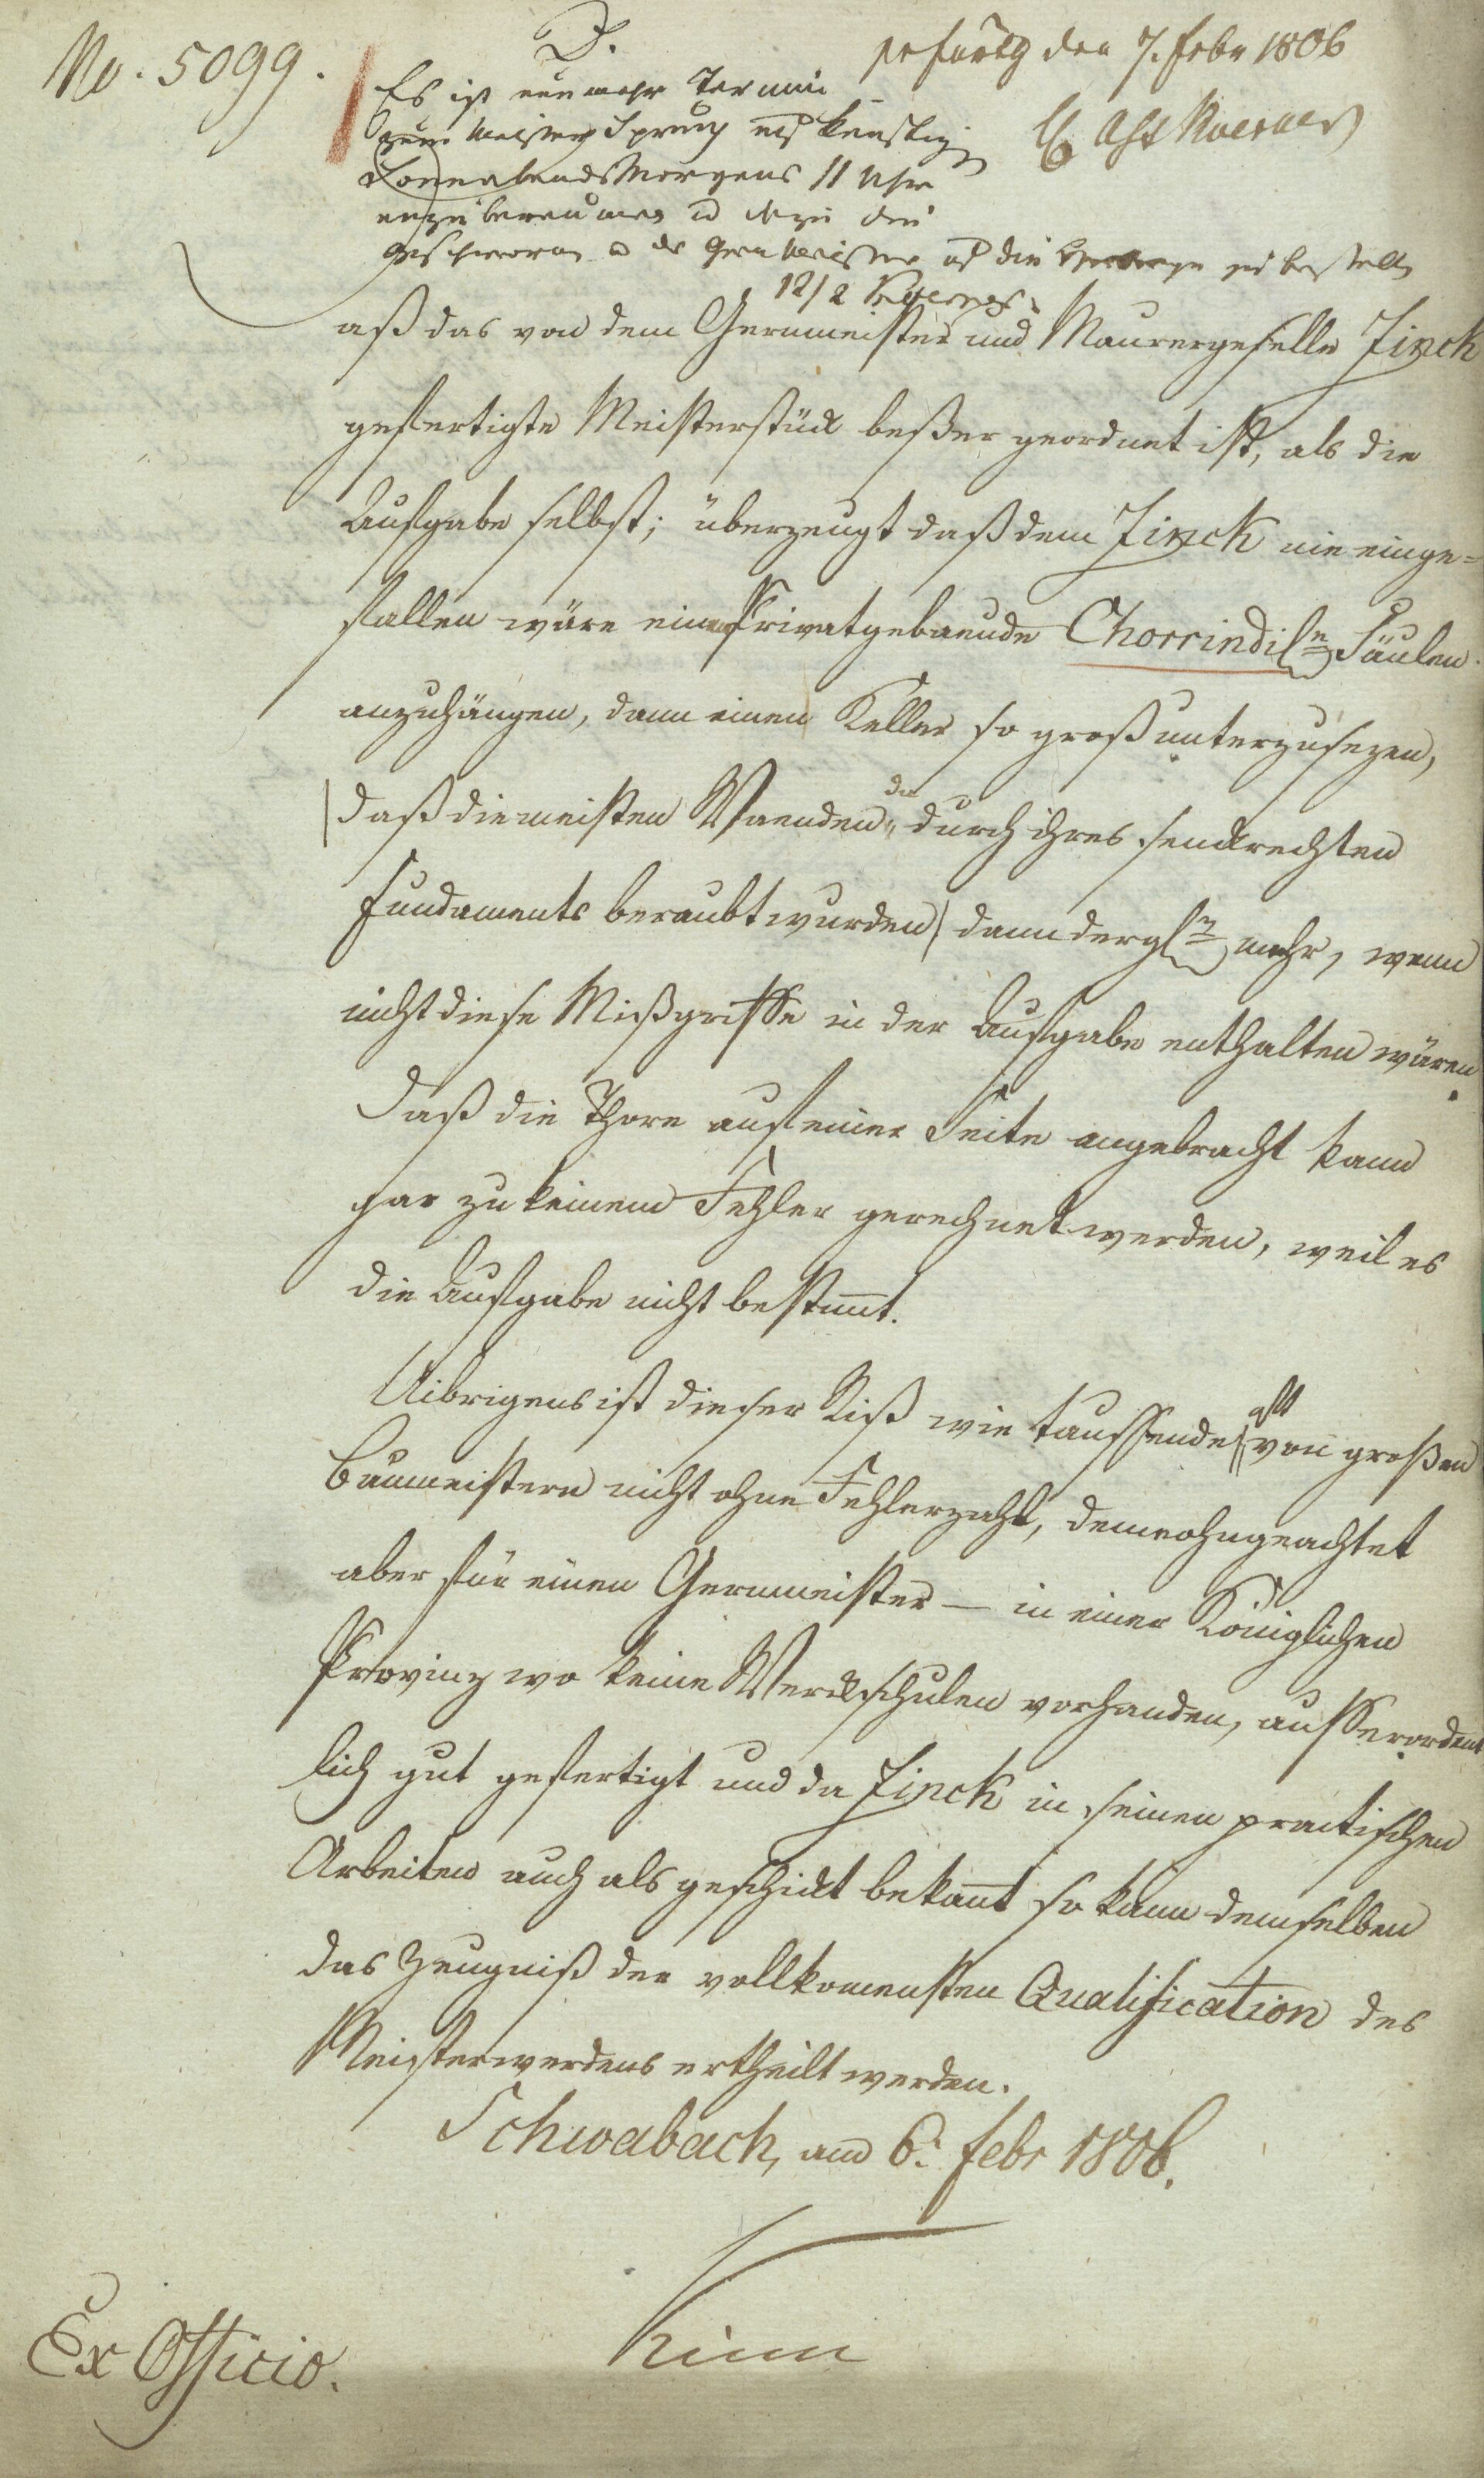 No. 5099.
D.
den 7. Febr 1806
Es ist nunmehr Termin
zum Meister Spruch auf künftigen
Sonnabends Morgens 11 Uhr
anzuberaumen u dazu die
Geschwornen u der auf die zu bestellen
12/2
aß das von dem Germeister und Maurergeselle Zinck
gefertigte Meisterstück beßer geordnet ist, als die
Aufgabe selbst; überzeugt daß dem Zinck nie einge=
fallen wäre einem Privatgebaeude Chorrindisn Säulen
anzuhängen, dann einen Keller so groß unterzusezen,
daß die meisten Waenden da durch ihres senckrechten
Fundaments beraubt wurden dann dergln mehr, wenn
nicht diese Mißgriffe in der Aufgabe enthalten wären.
Daß die Thore auf einer Seite angebracht kann
gar zu keinem Fehler gerechnet werden, weil es
die Aufgabe nicht bestimt.
Uibrigens ist dieser Riß wie taussende oft von großen
Baumeistern nicht ohne Fehlerzahl, demeohngeachtet
aber für einen Germeister — in einer Königlichen
Provinz wo keine Werckschulen vorhanden, ausserordent
lich gut gefertigt und da Zinck in seinen practischen
Arbeiten auch als geschickt bekant so kann demselben
das Zeugniß der vollkomensten Qualification des
Meisterwerdens ertheilt werden.
Schwabach, am 6. Febr 1806.
Keim
Ex Officio.